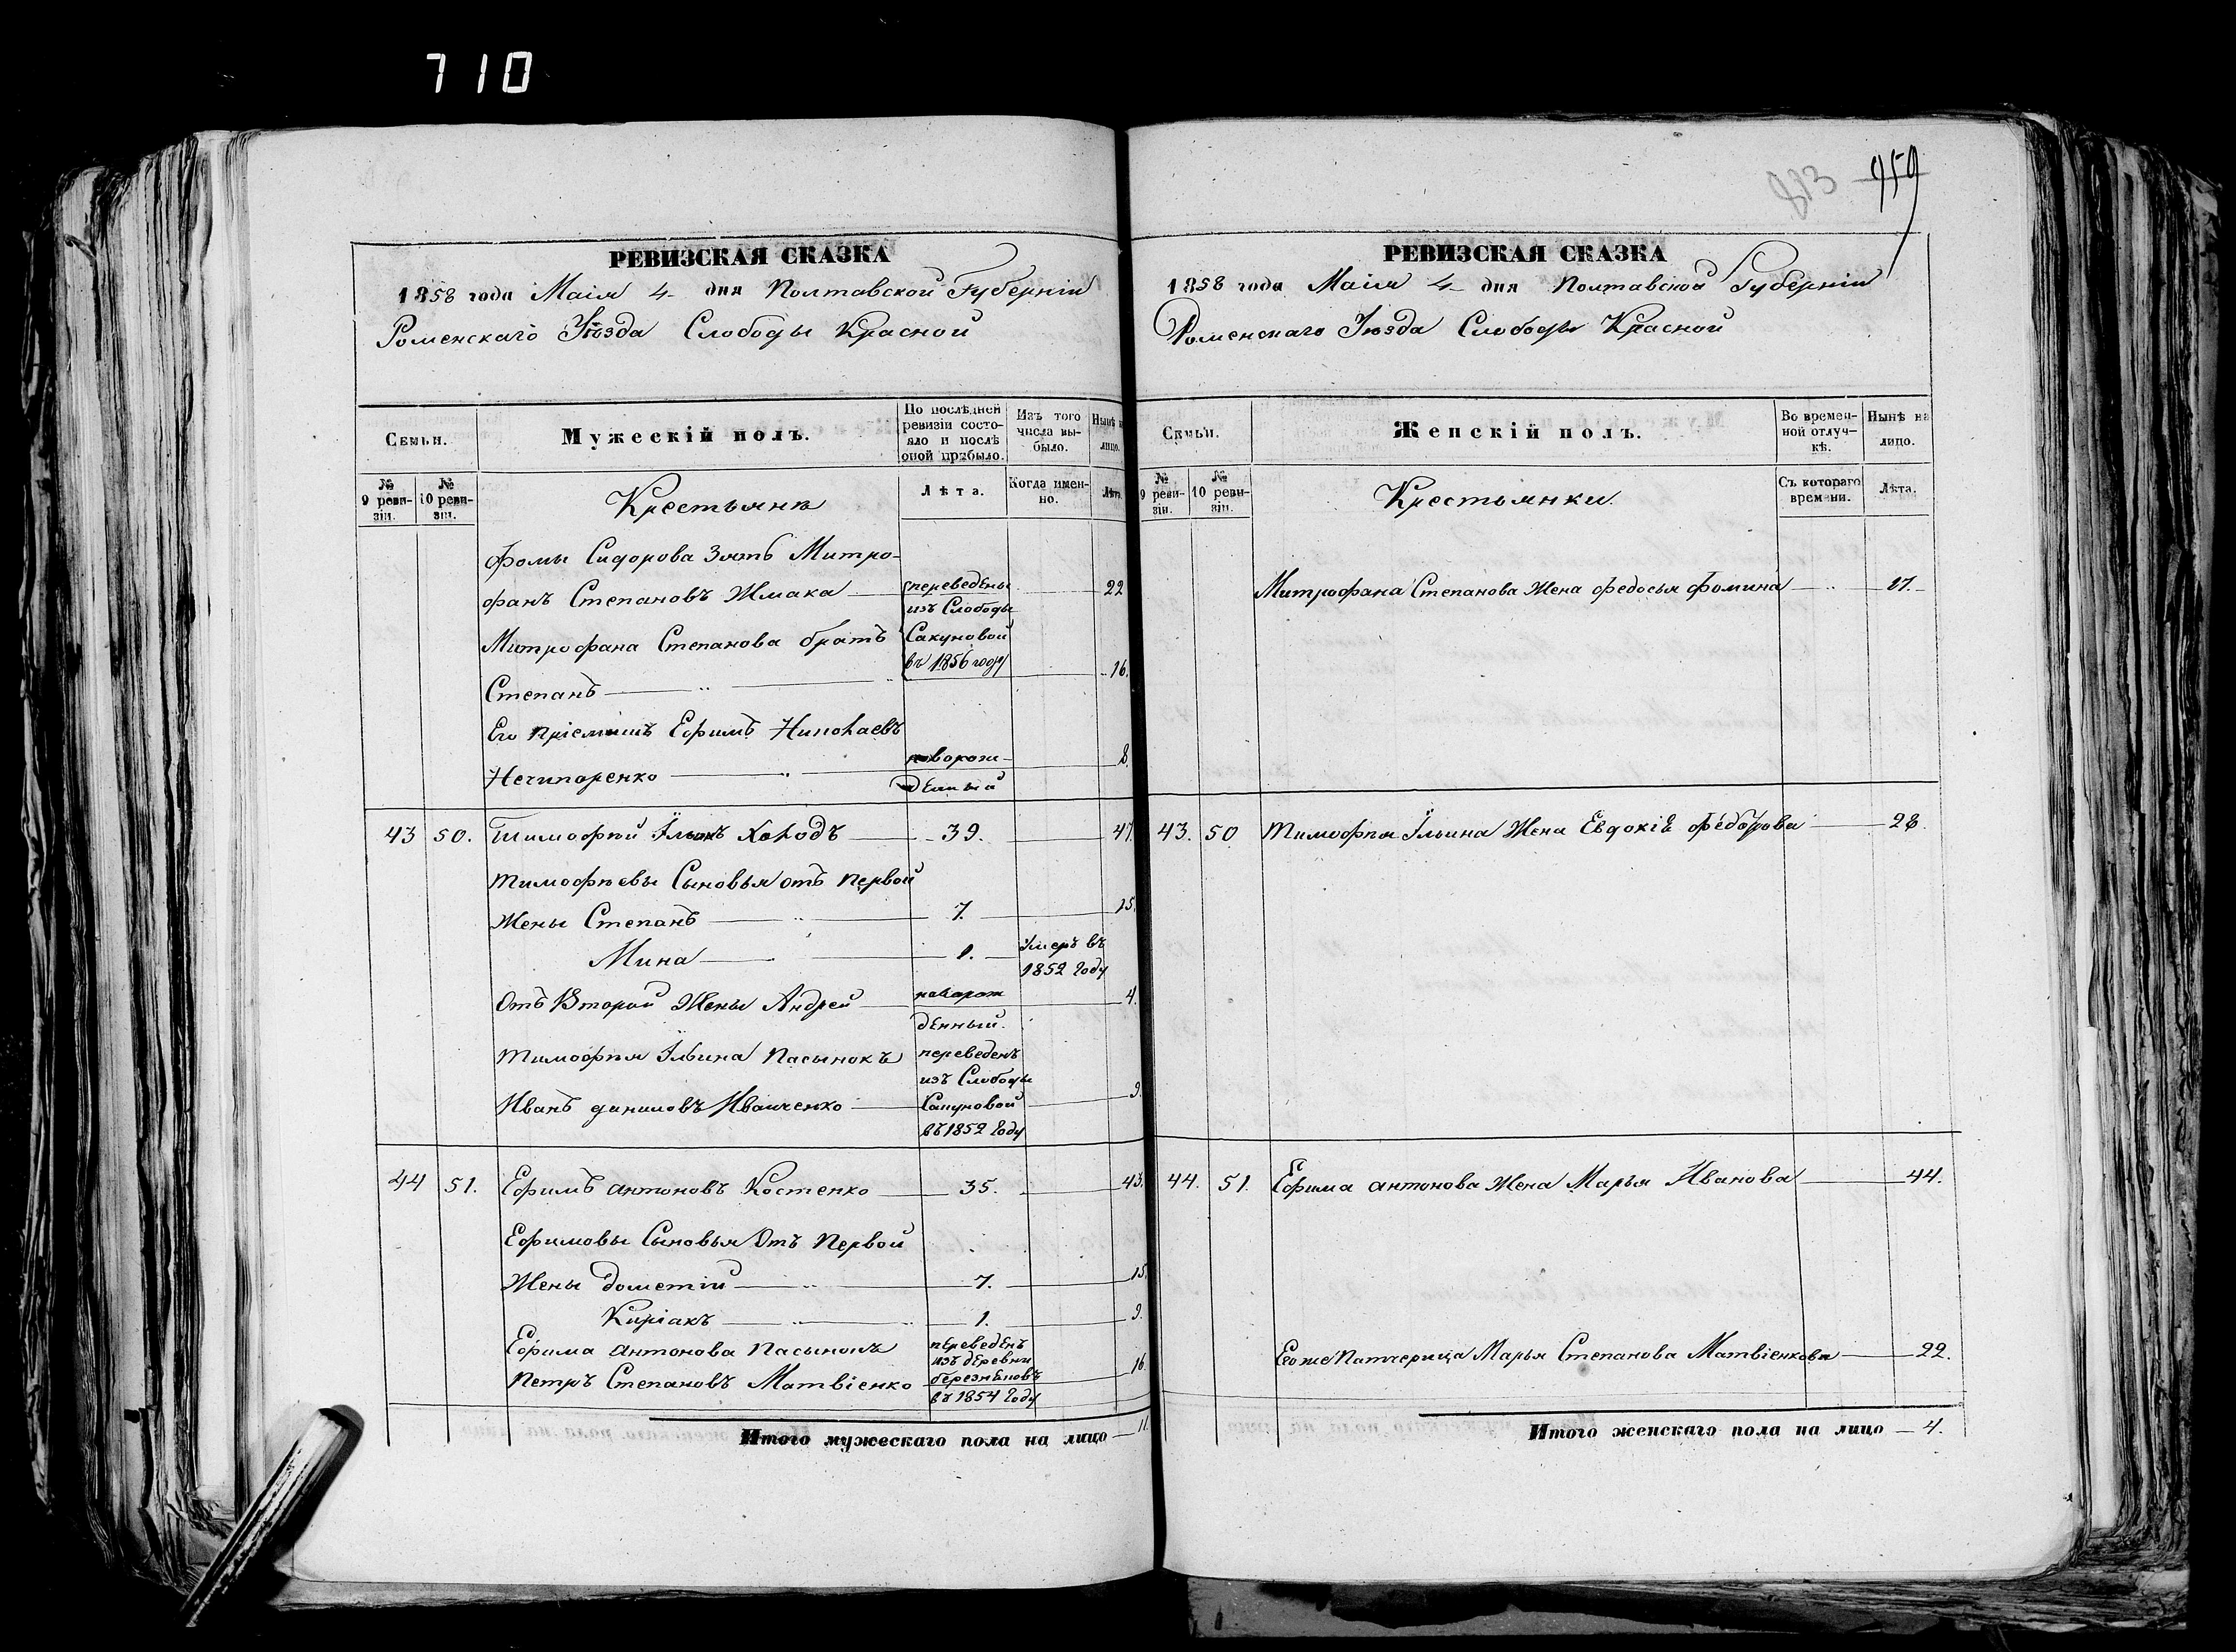 710
РЕВИЗСКАЯ СКАЗКА
1858 года Маія 4 дня Полтавской Губерніи
Роменскаго Уѣзда Слободы Красной
Семьи.
Мужескій полъ.
По послѣдней ревизіи состояло и послѣ оной прибыло.
Изъ того числа выбыло.
Нынѣ на лицо.
№ 9 ревизіи.
№ 10 ревизіи.
Крестьяне
Лѣта.
Когда именно.
Лѣта.
Фомы Сидорова Зять Митро-
фанъ Степановъ Жмака 22
переведены
изъ Слободы
Митрофана Степанова братъ
Сакуновой
въ 1856 году
Степанъ 16.
Его пріемышъ Ефимъ Николаевъ
Нечипоренко 8.
новорож-
денный
43 50. Тимофѣй Ильинъ Холодъ 39. 47.
Тимофѣевы Сыновья отъ первой
Жены Степанъ 7. 15.
Мина 1. Умеръ въ
1852 Году
Отъ Второй Жены Андрей 4.
новорож
денный.
Тимофѣя Ильина пасынокъ
переведенъ
изъ Слободы
Иванъ даниловъ Иванченко 9.
Сакуновой
въ 1852 Году
44 51. Ефимъ антоновъ Костенко 35. 43.
Ефимовы Сыновья Отъ Первой
Жены Дометій 7. 15.
Киріакъ 1. 9.
Ефима Антонова пасынокъ
переведенъ
изъ деревни
Петръ Степановъ Матвіенко 16.
въ 1854 Году
Итого мужескаго пола на лицо 11.
813 959
РЕВИЗСКАЯ СКАЗКА
1858 года Маія 4 дня Полтавской Губерніи
Роменскаго Уѣзда Слободы Красной
Семьи.
Женскій полъ.
Во временной отлучкѣ.
Нынѣ на лицо.
№ 9 ревизіи.
№ 10 ревизіи.
Крестьянки.
Съ котораго времени.
Лѣта.
Митрофана Степанова Жена Федосья Фомина 17.
43. 50 Тимофѣя Ильина Жена Евдокія Федорова 28.
44. 51. Ефима антонова Жена Марья Иванова 44.
Егоже Патчерица Марья Степанова Матвіенкова 22.
Итого женскаго пола на лицо 4.